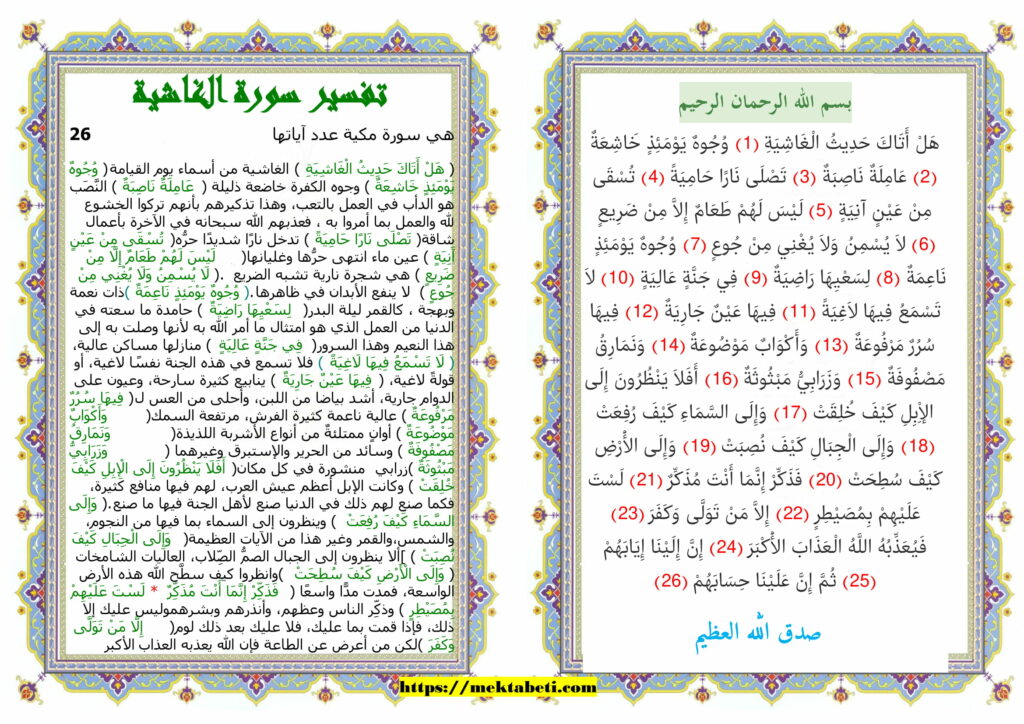 بسم الله الرحمان الرحيم
هَلْ أَتَاكَ حَدِيثُ الْغَاشِيَةِ (1) وُجُوهٌ يَوْمَئِذٍ خَاشِعَةٌ
(2) عَامِلَةٌ نَاصِبَةٌ (3) تَصْلَى نَارًا حَامِيَةً (4) تُسْقَى
مِنْ عَيْنٍ آنِيَةٍ (5) لَيْسَ لَهُمْ طَعَامٌ إِلاَّ مِنْ ضَرِيعٍ
(6) لاَ يُسْمِنُ وَلاَ يُغْنِي مِنْ جُوعٍ (7) وُجُوهٌ يَوْمَئِذٍ
نَاعِمَةٌ (8) لِسَعْيِهَا رَاضِيَةٌ (9) فِي جَنَّةٍ عَالِيَةٍ (10) لاَ
تَسْمَعُ فِيهَا لاَغِيَةً (11) فِيهَا عَيْنٌ جَارِيَةٌ (12) فِيهَا
سُرُرٌ مَرْفُوعَةٌ (13) وَأَكْوَابٌ مَوْضُوعَةٌ (14) وَنَمَارِقُ
مَصْفُوفَةٌ (15) وَزَرَابِيُّ مَبْثُوثَةٌ (16) أَفَلاَ يَنْظُرُونَ إِلَى
الإِبِلِ كَيْفَ خُلِقَتْ (17) وَإِلَى السَّمَاءِ كَيْفَ رُفِعَتْ
(18) وَإِلَى الْجِبَالِ كَيْفَ نُصِبَتْ (19) وَإِلَى الأَرْضِ
كَيْفَ سُطِحَتْ (20) فَذَكِّرْ إِنَّمَا أَنْتَ مُذَكِّرٌ (21) لَسْتَ
عَلَيْهِمْ بِمُصَيْطِرٍ (22) إِلاَّ مَنْ تَوَلَّى وَكَفَرَ (23)
فَيُعَذِّبُهُ اللَّهُ الْعَذَابَ الأَكْبَرَ (24) إِنَّ إِلَيْنَا إِيَابَهُمْ
(25) ثُمَّ إِنَّ عَلَيْنَا حِسَابَهُمْ (26)
صدق الله العظيم
تفسير سورة الغاشية
هي سورة مكية عدد آياتها 26
( هَلْ أَتَاكَ حَدِيثُ الْغَاشِيَةِ ) الغاشية من أسماء يوم القيامة( وُجُوهٌ
يَوْمَئِذٍ خَاشِعَةٌ ) وجوه الكفرة خاضعة ذليلة ( عَامِلَةٌ نَاصِبَةٌ ) النَّصَب
هو الدأب في العمل بالتعب، وهذا تذكيرهم بأنهم تركوا الخشوع
لله والعمل بما أمروا به ، فعذبهم الله سبحانه في الآخرة بأعمال
شاقة( تَصْلَى نَارًا حَامِيَةً ) تدخل نارًا شديدًا حرُّه( تُسْقَى مِنْ عَيْنٍ
آنِيَةٍ ) عين ماء انتهى حرُّها وغليانها( لَيْسَ لَهُمْ طَعَامٌ إِلَّا مِنْ
ضَرِيعٍ ) هي شجرة نارية تشبه الضريع .( لَا يُسْمِنُ وَلَا يُغْنِي مِنْ
جُوعٍ ) لا ينفع الأبدان في ظاهرها.( وُجُوهٌ يَوْمَئِذٍ نَاعِمَةٌ )ذات نعمة
وبهجة ، كالقمر ليلة البدر( لِسَعْيِهَا رَاضِيَةٌ ) حامدة ما سعته في
الدنيا من العمل الذي هو امتثال ما أمر الله به لأنها وصلت به إلى
هذا النعيم وهذا السرور( فِي جَنَّةٍ عَالِيَةٍ ) منازلها مساكن عالية،
( لَا تَسْمَعُ فِيهَا لَاغِيَةً ) فلا تسمع في هذه الجنة نفسًا لاغية، أو
قولةً لاغية، ( فِيهَا عَيْنٌ جَارِيَةٌ ) ينابيع كثيرة سارحة، وعيون على
الدوام جارية، أشد بياضا من اللبن، وأحلى من العسل لـ( فِيهَا سُرُرٌ
مَرْفُوعَةٌ ) عالية ناعمة كثيرة الفرش، مرتفعة السمك( وَأَكْوَابٌ
مَوْضُوعَةٌ ) أوانٍ ممتلئةٌ من أنواع الأشربة اللذيذة( وَنَمَارِقُ
مَصْفُوفَةٌ ) وسائد من الحرير والإستبرق وغيرهما ( وَزَرَابِيُّ
مَبْثُوثَةٌ )زرابي منشورة في كل مكان( أَفَلَا يَنْظُرُونَ إِلَى الْإِبِلِ كَيْفَ
خُلِقَتْ ) وكانت الإبل أعظم عيش العرب، لهم فيها منافع كثيرة،
فكما صنع لهم ذلك في الدنيا صنع لأهل الجنة فيها ما صنع.( وَإِلَى
السَّمَاءِ كَيْفَ رُفِعَتْ ) وينظرون إلى السماء بما فيها من النجوم،
والشمس،والقمر وغير هذا من الآيات العظيمة( وَإِلَى الْجِبَالِ كَيْفَ
نُصِبَتْ ) ألا ينظرون إلى الجبال الصمُّ الصِّلاب، العاليات الشامخات
( وَإِلَى الْأَرْضِ كَيْفَ سُطِحَتْ )وانظروا كيف سطَّح الله هذه الأرض
الواسعة، فمدت مدًّا واسعًا ( فَذَكِّرْ إِنَّمَا أَنْتَ مُذَكِّرٌ * لَسْتَ عَلَيْهِمْ
بِمُصَيْطِرٍ ) وذكّر الناس وعظهم، وأنذرهم وبشرهموليس عليك إلا
ذلك، فإذا قمت بما عليك، فلا عليك بعد ذلك لوم( إِلَّا مَنْ تَوَلَّى
وَكَفَرَ )لكن من أعرض عن الطاعة فإن الله يعذبه العذاب الأكبر
https://mektabeti.com